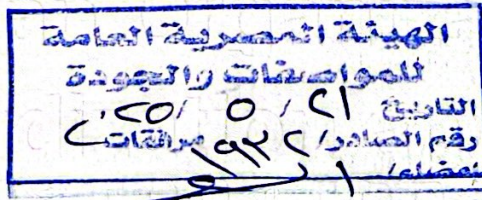 الهيئة المصرية العامة
للمواصفات والجودة
التاريخ ٢١ / ٥ / ٢٠٢٥
رقم الصادر / ١٩٣٢ مرفقات
إمضاء /